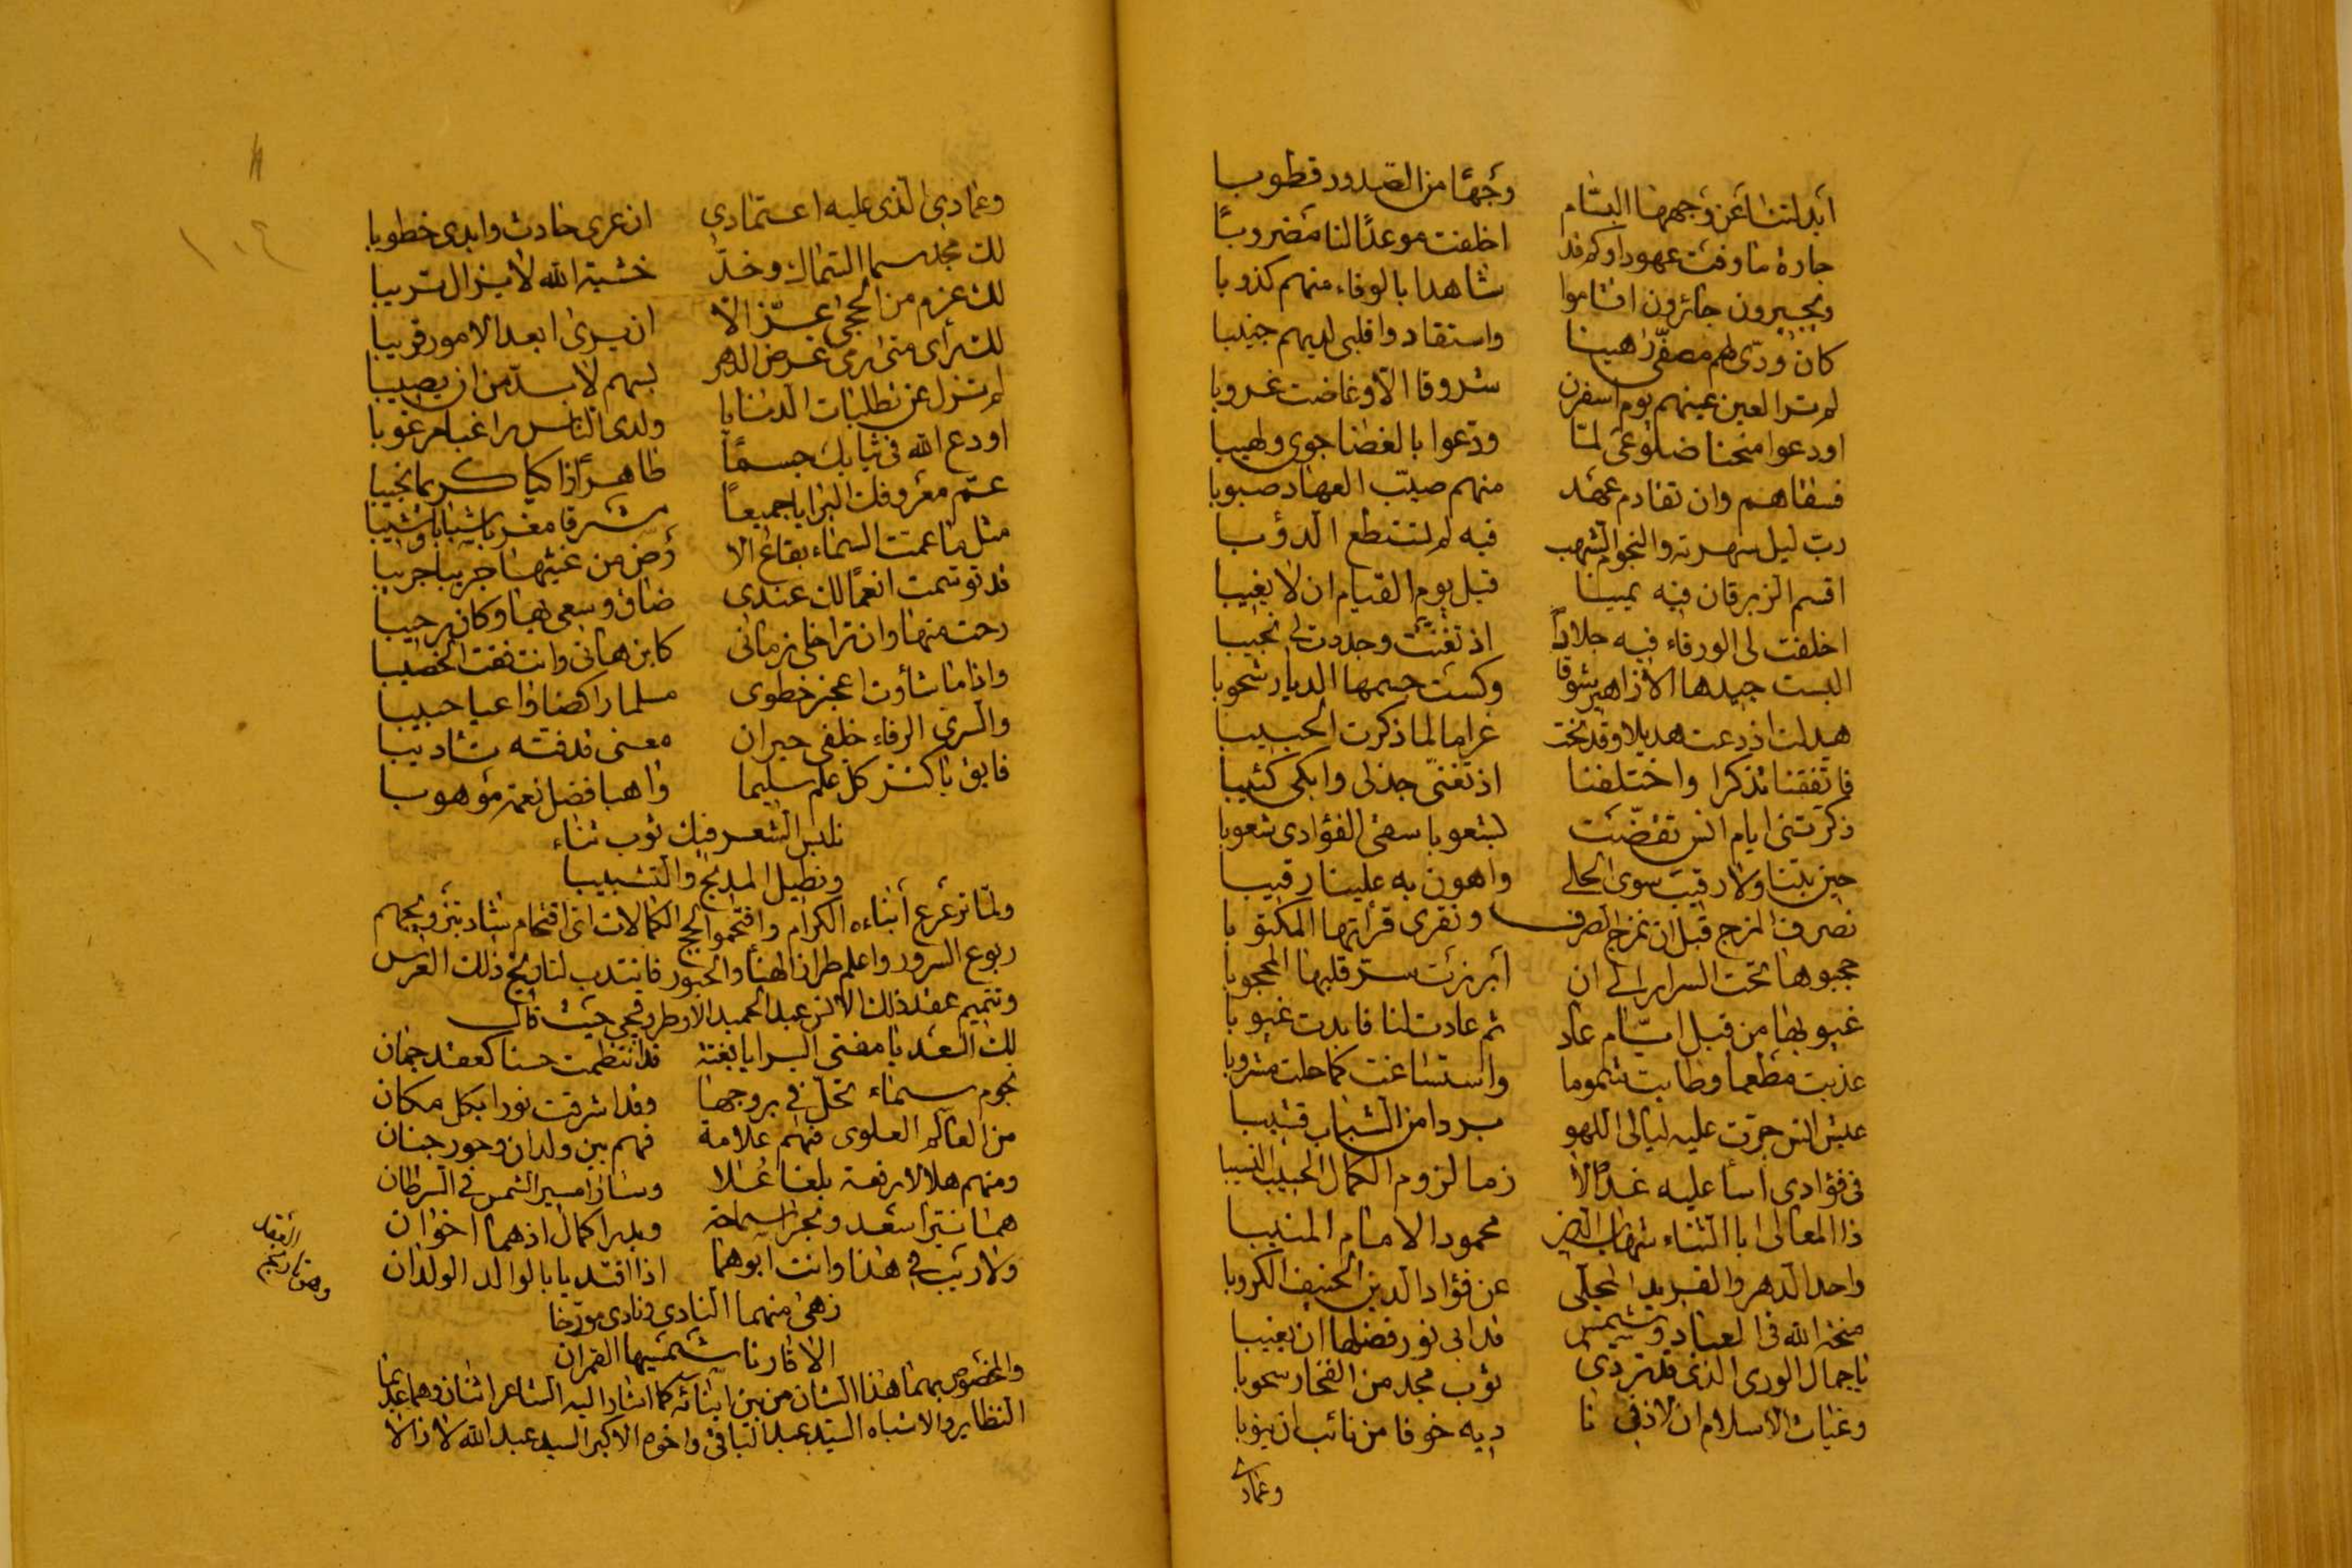 أبدلتنا عن وجهها البسّام وجهًا من الصدود قطوبا
جارة ما وفت عهودا وكم قد اخلفت موعدًا لنا مضروبًا
ويجيرون جائرون اقاموا شاهدا بالوفاء منهم كذوبا
كان ودّى لهم مصفّى واستقادوا قلبى لديهم جنيبا
لم تر العين عينهم يوم اسفرن شروقا الا وغاضت غروبا
اودعوا منحنا ضلوعى لمّا ودّعوا بالغضا جوى ولهيبا
فسقاهم وان تقادم عهد منهم صيّب العهاد صبوبا
ربّ ليل سهرته والنجوم الشهب فيه لم تستطع الدؤبا
اقسم الزبرقان فيه يمينا قبل يوم القيام ان لا يغيبا
اخلفت لى الورقاء فيه جلادًا اذ تغنّت وجدّدت لى نحيبا
البست جيدها الازاهير شوقا وكست جسمها الديار شحوبا
هدلت اذ دعت هديلا وقد نحت غراما لما ذكرت الحبيبا
فاتفقنا تذكرا واختلفنا اذ تغنّى جذلى وابكى كئيبا
ذكرتنى ايام انس تقضّت بشعوبا سقى الفؤادى شعوبا
حين بتنا ولا رقيب سوى الحلى واهون به علينا رقيبا
نصرف المزج قبل ان نمزج الصرف ونقرى قراتها المكتوبا
حجبوها تحت السراير الى ان أبرزت ستر قلبها المحجوبا
غبو بها من قبل ايّام عاد ثم عادت لنا فابدت غيوبا
عذبت مطعما وطابت شموما واستساغت كما حلت مشروبا
عيش انس جرّت عليه ليالى اللهو بردا من الشباب قشيبا
فى فؤادى اسا عليه غدا لا زما لزوم الكمال الحبيب النسيبا
ذا المعالى ابا الثناء شهاب الدين محمود الامام المنيبا
واحد الدهر والفريد المجلّى عن فؤاد الدين الحنيف الكروبا
منحة الله فى العباد وشمس قد ابى نور فضلها ان يغيبا
يا جمال الورى الذى قد تردى ثوب مجد من الفخار سحوبا
وغياث الاسلام ان لاذ فى نا ديه خوفا من نائب ان ينوبا
وعمادى
وعمادى الذى عليه اعتمادى ان عرى حادث وابدى خطوبا
لك مجد سما السماك وخدّ خشية الله لا يزال تريبا
لك عزم من الحجى عزّ الا ان يرى ابعد الامور قريبا
لك رأى متى رمى غرض الدهر بسهم لا بدّ من ان يصيبا
لم تزل عن تطلبات الدنايا ولدى الناس راغبا مرغوبا
اودع الله فى ثيابك جسمًا طاهرًا زاكيا كريما نجيبا
عمّ معروفك البرايا جميعًا مشرقا مغربا شبابا وشيبا
مثل ما عمّت السماء بقاع الا رض من غيثها جريبا جريبا
قد توسمت انعمًا لك عندى ضاق وسعى بها وكان رحيبا
رحت منها وان تراخى زمانى كابن هانى وانت فقت الخصيبا
واذا ما شأوت اعجز خطوى مسلما راكضا واعيا حبيبا
والسرى الرفاء خلفى حيران معنى قد فته تشاديبا
فابق ياكنز كل علم سليما واهبا فضل نعمة موهوبا
نلبس الشعر فيك ثوب ثناء
ونطيل المديح والتشبيبا
ولمّا ترعرع أبناءه الكرام واقتحموا لجج الكمالات اى اقتحام شاد بتزويجهم
ربوع السرور واعلم طراز الهنأ والحبور فانتدب لتاريخ ذلك العرس
وتتميم عقد ذلك الانس عبد الحميد الاطرقجى حيث قال
لك السعد يا مفتى البرايا بفتية قد انتظمت حسنا كعقد جمان
نجوم سماء تحلّ فى بروجها وقد اشرقت نورا بكل مكان
من العالم العلوى فيهم علامة فهم بين ولدان وحور جنان
ومنهم هلالا رفعة بلغا علا وسارا مسير الشمس فى السرطان
هما نيّرا سعد وبحرا سماحة وبدرا كمال اذ هما اخوان
ولا ريب فى هذا وانت ابوهما اذا اقتديا بالوالد الولدان
زهى منهما النادى ونادى مورّخا
الا قارنا شمسيهما القمران
والمخصوص بهما هذا الشان من بين ابنائه كما اشار اليه الشاعر اثنان وهما عديما
النظاير والاشباه السيد عبد الباقى واخوه الاكبر السيد عبد الله لا زالا